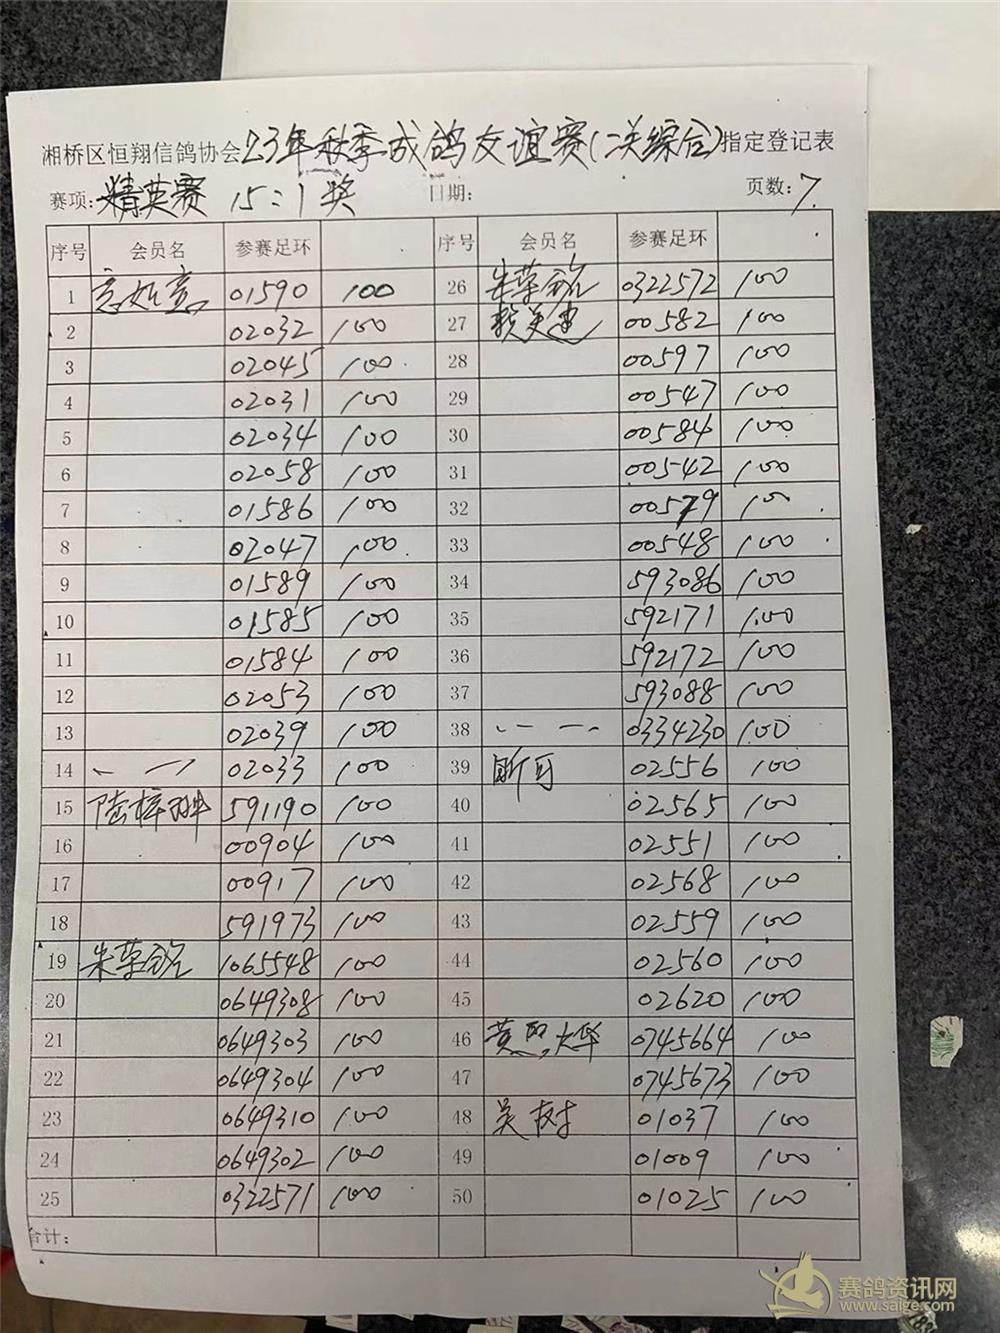 湘桥区恒翔信鸽协会23年秋季成鸽友谊赛(二关综合)指定登记表
赛项:精英赛 15:1奖 日期: 页数:7.
序号 会员名 参赛足环 序号 会员名 参赛足环
1 01590 100 26 朱荣 0322572 100
2 02032 100 27 00582 100
3 02045 100 28 00597 100
4 02031 100 29 00547 100
5 02034 100 30 00584 100
6 02058 100 31 00542 100
7 01586 100 32 00579 100
8 02047 100 33 00548 100
9 01589 100 34 593086 100
10 01585 100 35 592171 100
11 01584 100 36 592172 100
12 02053 100 37 593088 100
13 02039 100 38 0334230 100
14 02033 100 39 02556 100
15 陆梓 591190 100 40 02565 100
16 00904 100 41 02551 100
17 00917 100 42 02568 100
18 591973 100 43 02559 100
19 朱荣 1065548 100 44 02560 100
20 0649308 100 45 02620 100
21 0649303 100 46 黄 0745664 100
22 0649304 100 47 0745673 100
23 0649310 100 48 吴树 01037 100
24 0649302 100 49 01009 100
25 0322571 100 50 01025 100
合计:
赛鸽资讯网
www.saige.com